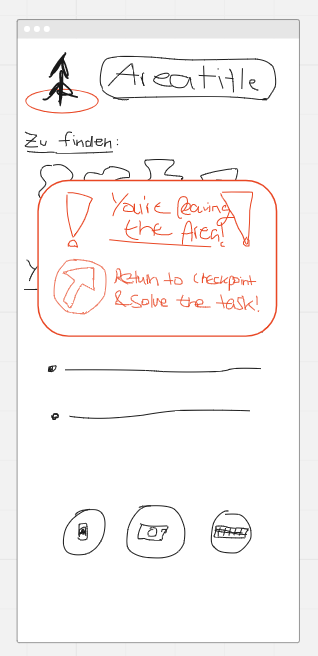 Areatitle
Zu finden:
You're leaving
the Area!
Return to checkpoint
& solve the task!